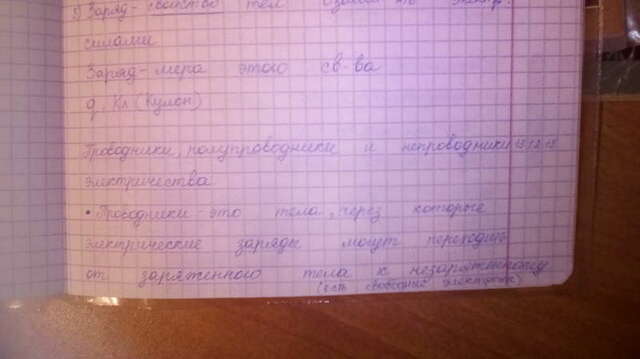 5) Заряд - свойство тел взаимод-ть электр.
силами
Заряд - мера этого св-ва
q, Кл (Кулон)
Проводники, полупроводники и непроводники
электричества.
• Проводники - это тела, через которые
электрические заряды могут переходить
от заряженного тела к незаряженному
(есть свободные электроны)